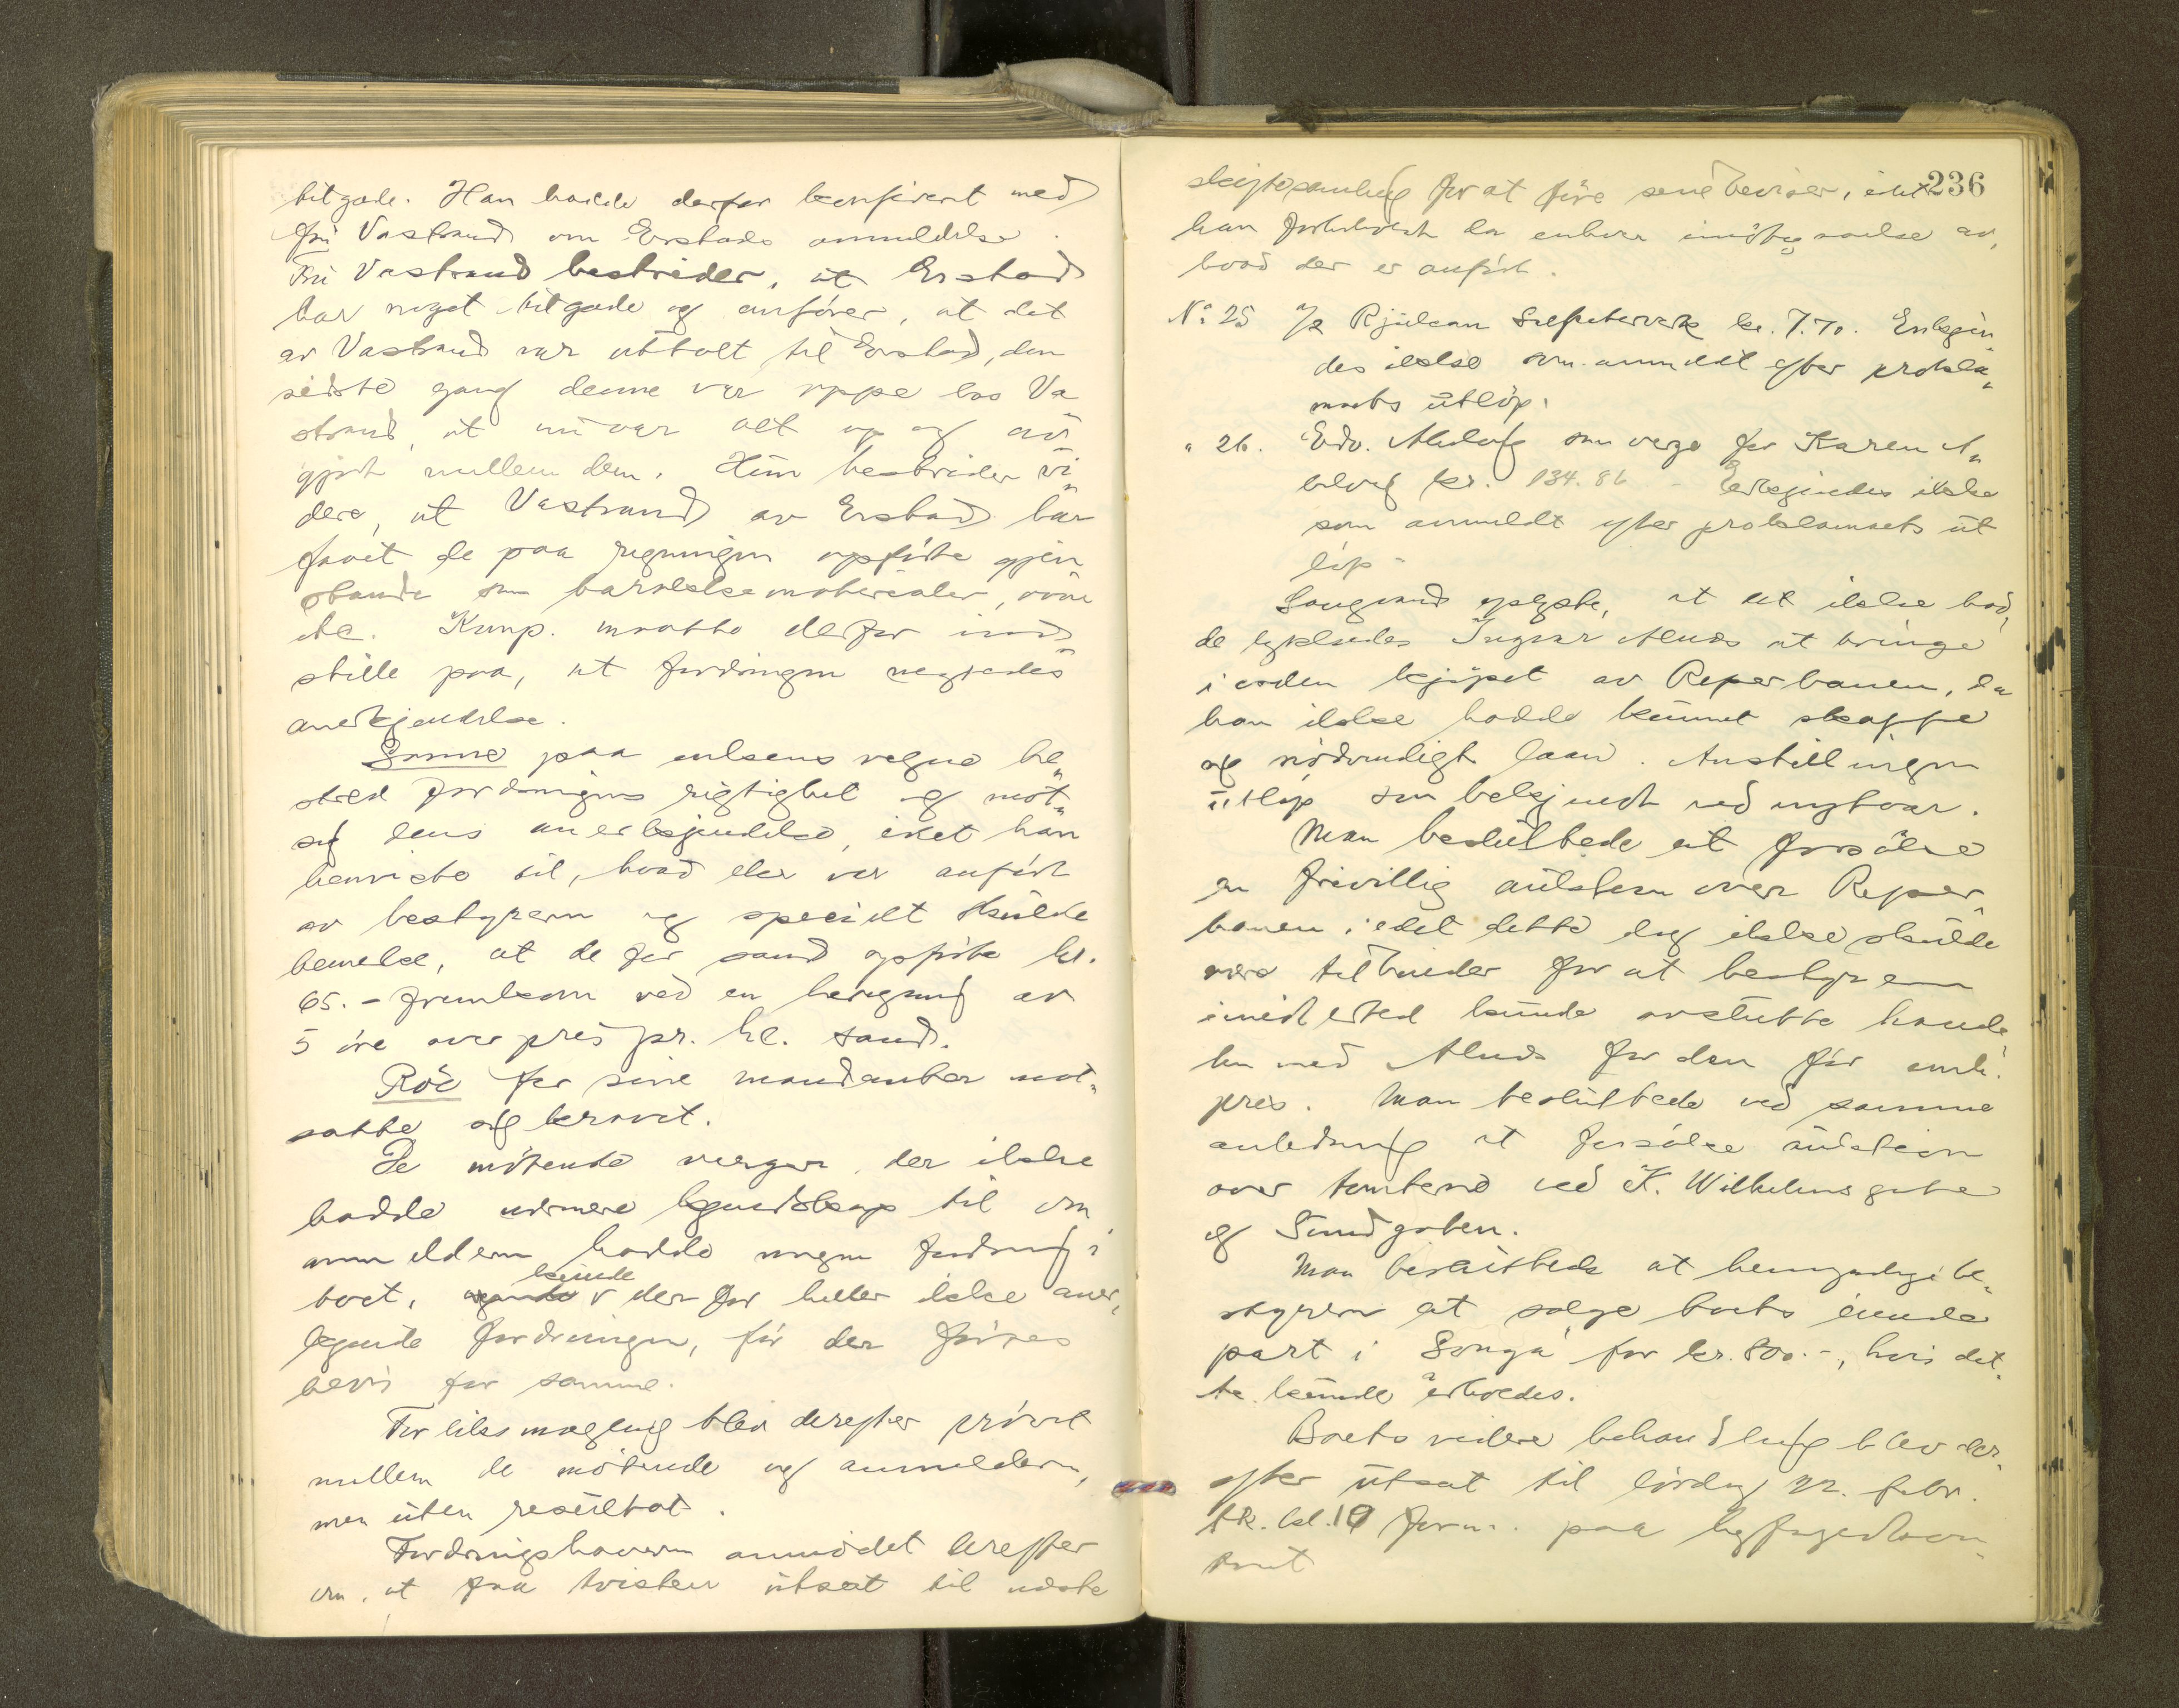 tilgode. Han hadde derfor konferert med
fru Vastrand om Erstads anmeldelse.
Fru Vastrand bestrider, at Erstad
har noget tilgode og anfører, at det
av Vastrand var uttalt til Erstad, den
sidste gang denne var oppe hos Va
strand, at nu var alt op og av
gjort mellem dem. Hun bestrider vi„
dere, at Vastrand av Erstad har
faaet de paa regningen opførte gjen
stande som materialer,
Komp. maatte derfor ind
stille paa, at fordringen negtedes
anerkjendelse.
Sonne paa enkens vegne be„
stred fordringens rigtighet og mot„
sa dens anerkjendelse, idet han
henviste til, hvad der var anført
av bestyreren og specielt
at de for sand opførte kr.
65.- fremkom ved en beregning av
5 øre over pris pr. hl. sand.
Röe for sine mandanter mot„
satte sig kravet.
De møtende verger, der ikke
hadde nærmere kjendskap til om
anmelderen hadde nogen fordring i
boet, kunde derfor heller ikke aner„
kjende fordringen, før der føres
bevis for samme.
Forliksmægling blev derefter prövet
mellem de møtende og anmelderen,
men uten resultat.
Fordringshaveren anmodet derefter
om, at faa tvisten utsat til næste
236
skiftesamling for at føre sine beviser, idet
han forbeholdt sig enhver imøtegaaelse av,
hvad der er anført.
No 25 A/S Rjukan Salpeterverk kr. 7.70. Erkjen„
des ikke som anmeldt efter prokla„
mets utløp.
" 26. Edv. som verge for Karen A„
kr. 134.86 - Erkjendes ikke
som anmeldt efter proklamaets ut
løp -
Langrand oplyste, at det ikke had„
de lykkedes Ingvar Aluds at bringe
i orden kjøpet av Reperbanen, da
han ikke hadde kunnet skaffe
sig nødvendigt laan. Anstillingen
utløp som bekjendt ved nytaar.
Man besluttede at forsøke
en frivillig auktion over Reper„
banen, idet dette dog ikke skulde
være til hinder for at bestyreren
imidlertid kunde avslutte hande„
len med Aluds for den før omh.
pris. Man besluttede ved samme
anledning at forsøke auktion
over tomtene ved K. Wilhelms gate
og Sundgaten.
Man besluttede at bemyndige be„
styreren at sælge boets
part i Songa for kr. 800.-, hvis det„
te kunde erholdes.
Boets videre behandling blev der„
efter utsat til lørdag 22. febr.
kl. 10 form. paa byfogedkon„
toret